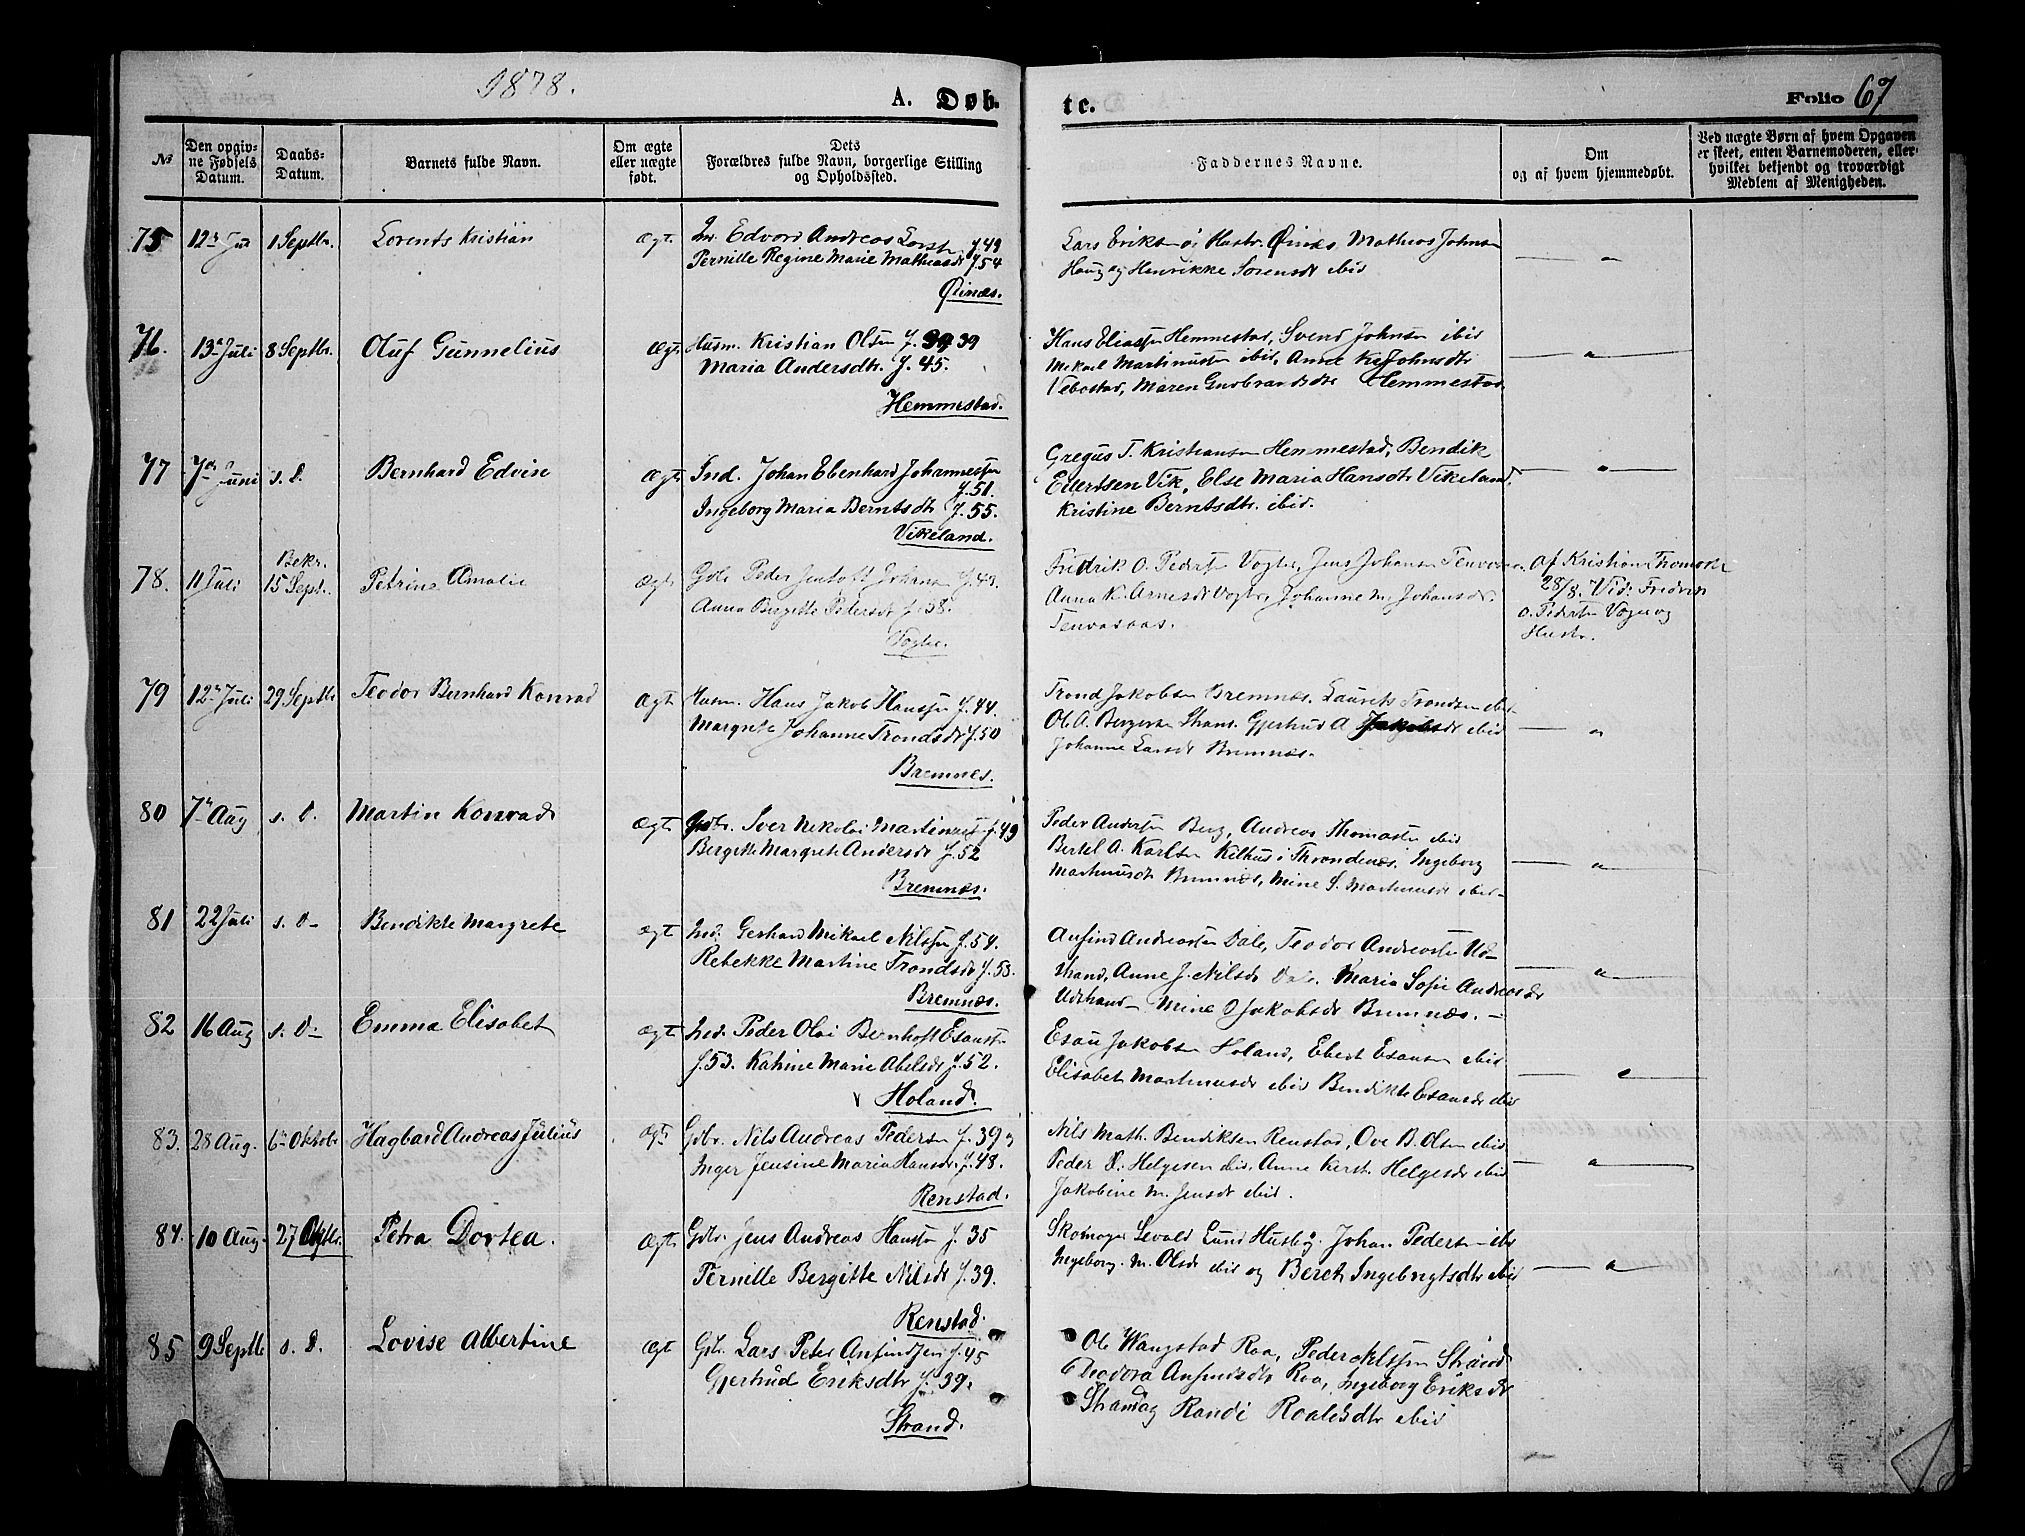 1878.
A. Døb-
te.
Folio 67
No
Den opgiv-
ne Fødsels
Datum.
Daabs-
Datum.
Barnets fulde Navn.
Om ægte
eller uægte
født.
Dets
Forældres fulde Navn, borgerlige Stilling
og Opholdssted.
Faddernes Navne.
Om
og af hvem hjemmedøbt.
Ved uægte Børn af hvem Opgaven
er skeet, enten Barnemoderen, eller
hvilket bekjendt og troværdigt
Medlem af Menigheden.
75 12 1 Septbr. Lorents Kristian ægt. Edvard Andreas f. 49
Pernille Regine Marie Mathiasdt f. 54
Lars Mathias Johns
Haug og Henrikke Sørensdt ibid
76. 13 Juli 8 Septbr. Oluf Gunnelius ægt. Husm. Kristian Olsen f. 39
Maria Andersdtr. f. 45.
Hemmestad.
Hans Eliassen Hemmestad, Svend Johnsen ibid
Mikael Martinussen ibid, Anne Johnsdtr
Vebostad, Maren Gudbrandsdtr Hemmestad
77 7 Juni s. D. Bernhard Edvin ægt. Ind. Johan Ebenhard Johannessen
f. 51.
Ingeborg Maria Berntsdtr f. 55.
Vikeland.
Gregus T. Kristiansen Hemmestad, Bendik
Eilertsen Vik, Else Maria Hansdtr Vikeland,
Kristine Berntsdtr. ibid.
78. 11 Juli Bekr.
15 Septr. Petrine Amalie ægt. Gbr. Peder Jentoft Johnsen f. 49.
Anna Birgitte Petersdt f. 58.
Fredrik O. Peders Jens Johansen
Anna K. Arnesdt Johanne M. Johansdr.
Af Kristian
28/8. Vid: Fredrik
O. Peders og
Hustr.
79 12 Juli 29 Septbr Teodor Bernhard Konrad ægt. Husm. Hans Jakob Hanssen f. 44.
Margrete Johanne Trondsdt f. 50
Bremnes.
Trond Jakobsen Bremnes. Laurits Trondsen ibid
Ol. A. Bergersen Gjertrud A Jakobsdt ibid
Johanne Larsdt Bremnes.
80 7 Aug s. D. Martin Konrad ægt. Gbr. Iver Nikolai Martinussen f. 49
Bergitte Margrete Andersdt f. 52
Bremnes.
Peder Andersen Berg, Andreas Thomassen ibid
Bertel A. Karlsen Kilhus i Throndenes, Ingeborg
Martinusdt Bremnes, Mine S. Martinusdt ibid-
81 22 Juli s. D- Bendikte Margrete ægt Ind. Gerhard Mikael Nilssen f. 54.
Rebekke Martine Trondsdt f. 58.
Bremnes.
Anfind Andreassen Dale, Teodor Andreassen Ud-
strand, Anne J. Nilsdt Dale. Maria Sofie Andreasdt
Udstrand- Mine Jakobsdt Bremnes.-
82 16 Aug s. D- Emma Elisabet ægt Ind. Peder Olai Bernhoft Esausen
f. 53. Katrine Marie Abelsdt f. 52.
Holand.
Esau Jakobsen Holand, Ebert Esausen ibid
Elisabet Martinusdt ibid Bendikte Esausdt ibid
83. 28 Aug. 6 Oktobr Hagbard Andreas Julius ægt Gbr. Nils Andreas Pedersen f. 39
Inger Jensine Maria Hansdr. f. 48.
Renstad.
Nils Math. Bendiksen Renstad, Ove B. Olsen ibid
Peder Helgesen ibid, Anne Kerst. Helgesdt ibid
Jakobine M. Jensdt ibid.
84. 10 Aug. 27 Petra Dortea. ægt. Gbr. Jens Andreas Hansen f. 35
Pernille Bergitte Nilsdt f. 39.
Renstad.
Skomager Sevald Lund Husby. Johan Peders- ibid
Ingeborg. M. Olsdt ibid og Beret Ingebrigtsdtr ibid
85 9 Septbr s. D. Lovise Albertine ægt Gbr. Lars Peter Anfindsen f. 45
Gjertrud Eriksdtr f. 39.
Strand.
Ole Wangstad Roa, Peder Strand
Teodora Anfindsdtr Roa, Ingeborg Eriksdt
Strand og Randi Roaldsdtr ibid